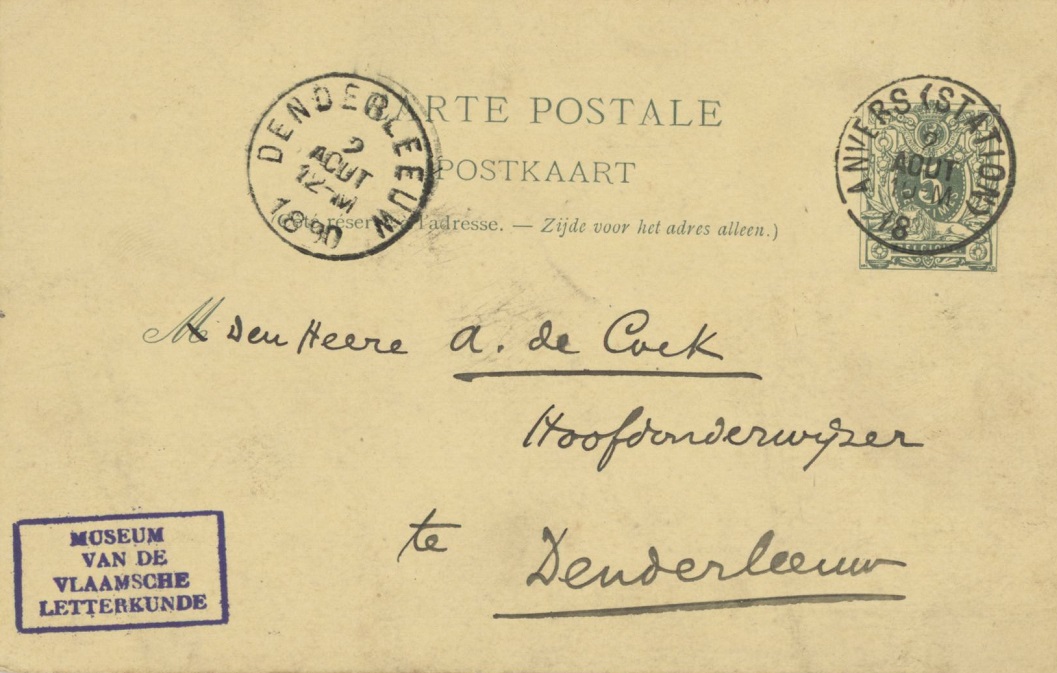 CARTE POSTALE
POSTKAART
(Côté réservé à l'adresse. — Zijde voor het adres alleen.)
DENDERLEEUW
2
AOUT
12-M
1890
ANVERS (STATION)
2
AOUT
12-M
18
M Den Heere A. de Cock
Hoofdonderwijzer
te Denderleeuw
MUSEUM
VAN DE
VLAAMSCHE
LETTERKUNDE